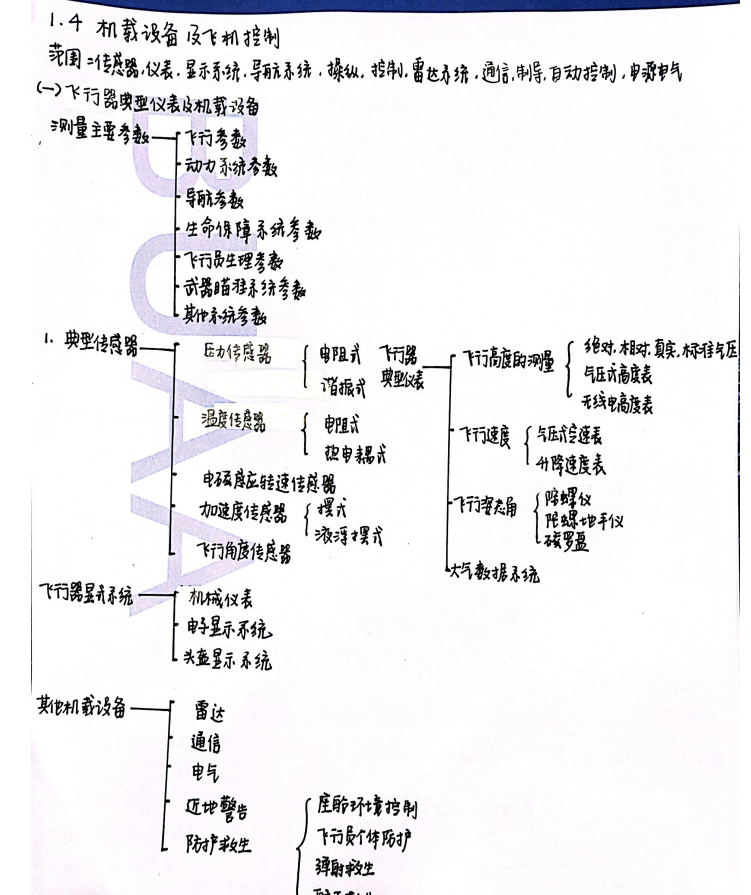 1.4 机载设备及飞机控制
范围：传感器、仪表、显示系统、导航系统、操纵、控制、雷达系统、通信、制导、自动控制、电源电气
(一) 飞行器典型仪表及机载设备
测量主要参数
飞行参数
动力系统参数
导航参数
生命保障系统参数
飞行员生理参数
武器瞄准系统参数
其他系统参数
1. 典型传感器
压力传感器
电阻式
谐振式
温度传感器
电阻式
热电耦式
电磁感应转速传感器
加速度传感器
摆式
液浮摆式
飞行角度传感器
飞行器
典型仪表
飞行高度的测量
绝对、相对、真实、标准气压
气压式高度表
无线电高度表
飞行速度
气压式空速表
升降速度表
飞行姿态角
陀螺仪
陀螺地平仪
磁罗盘
大气数据系统
飞行器显示系统
机械仪表
电子显示系统
头盔显示系统
其他机载设备
雷达
通信
电气
近地警告
防护救生
座舱环境控制
飞行员个体防护
弹射救生
BUAA